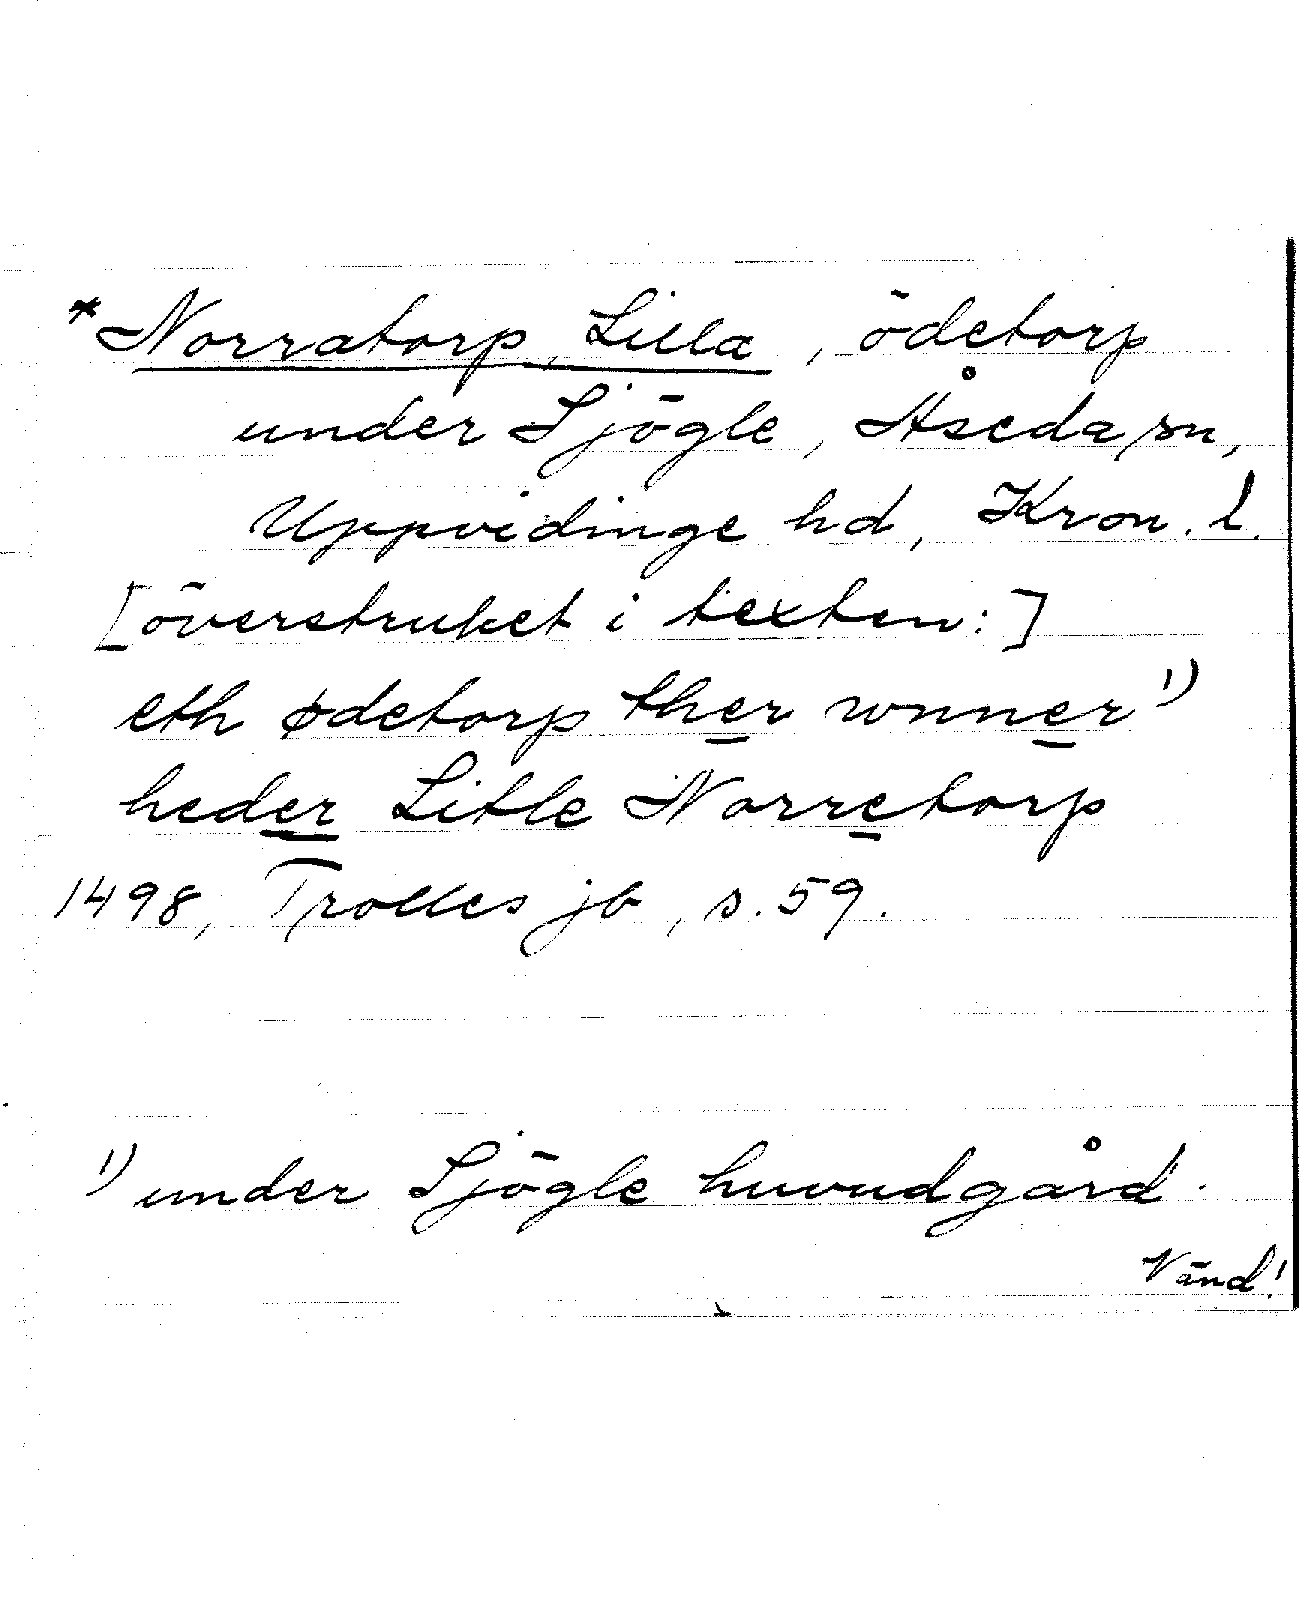 *Norratorp, Lilla, ödetorp
under Sjögle, Åseda sn,
Uppvidinge hd, Kron. l.
[överstruket i texten:]
eth ødetorp ther wnner 1)
heder Litle Norretorp
1498, Trolles jb, s. 59.
1) under Sjögle huvudgård.
Vänd!